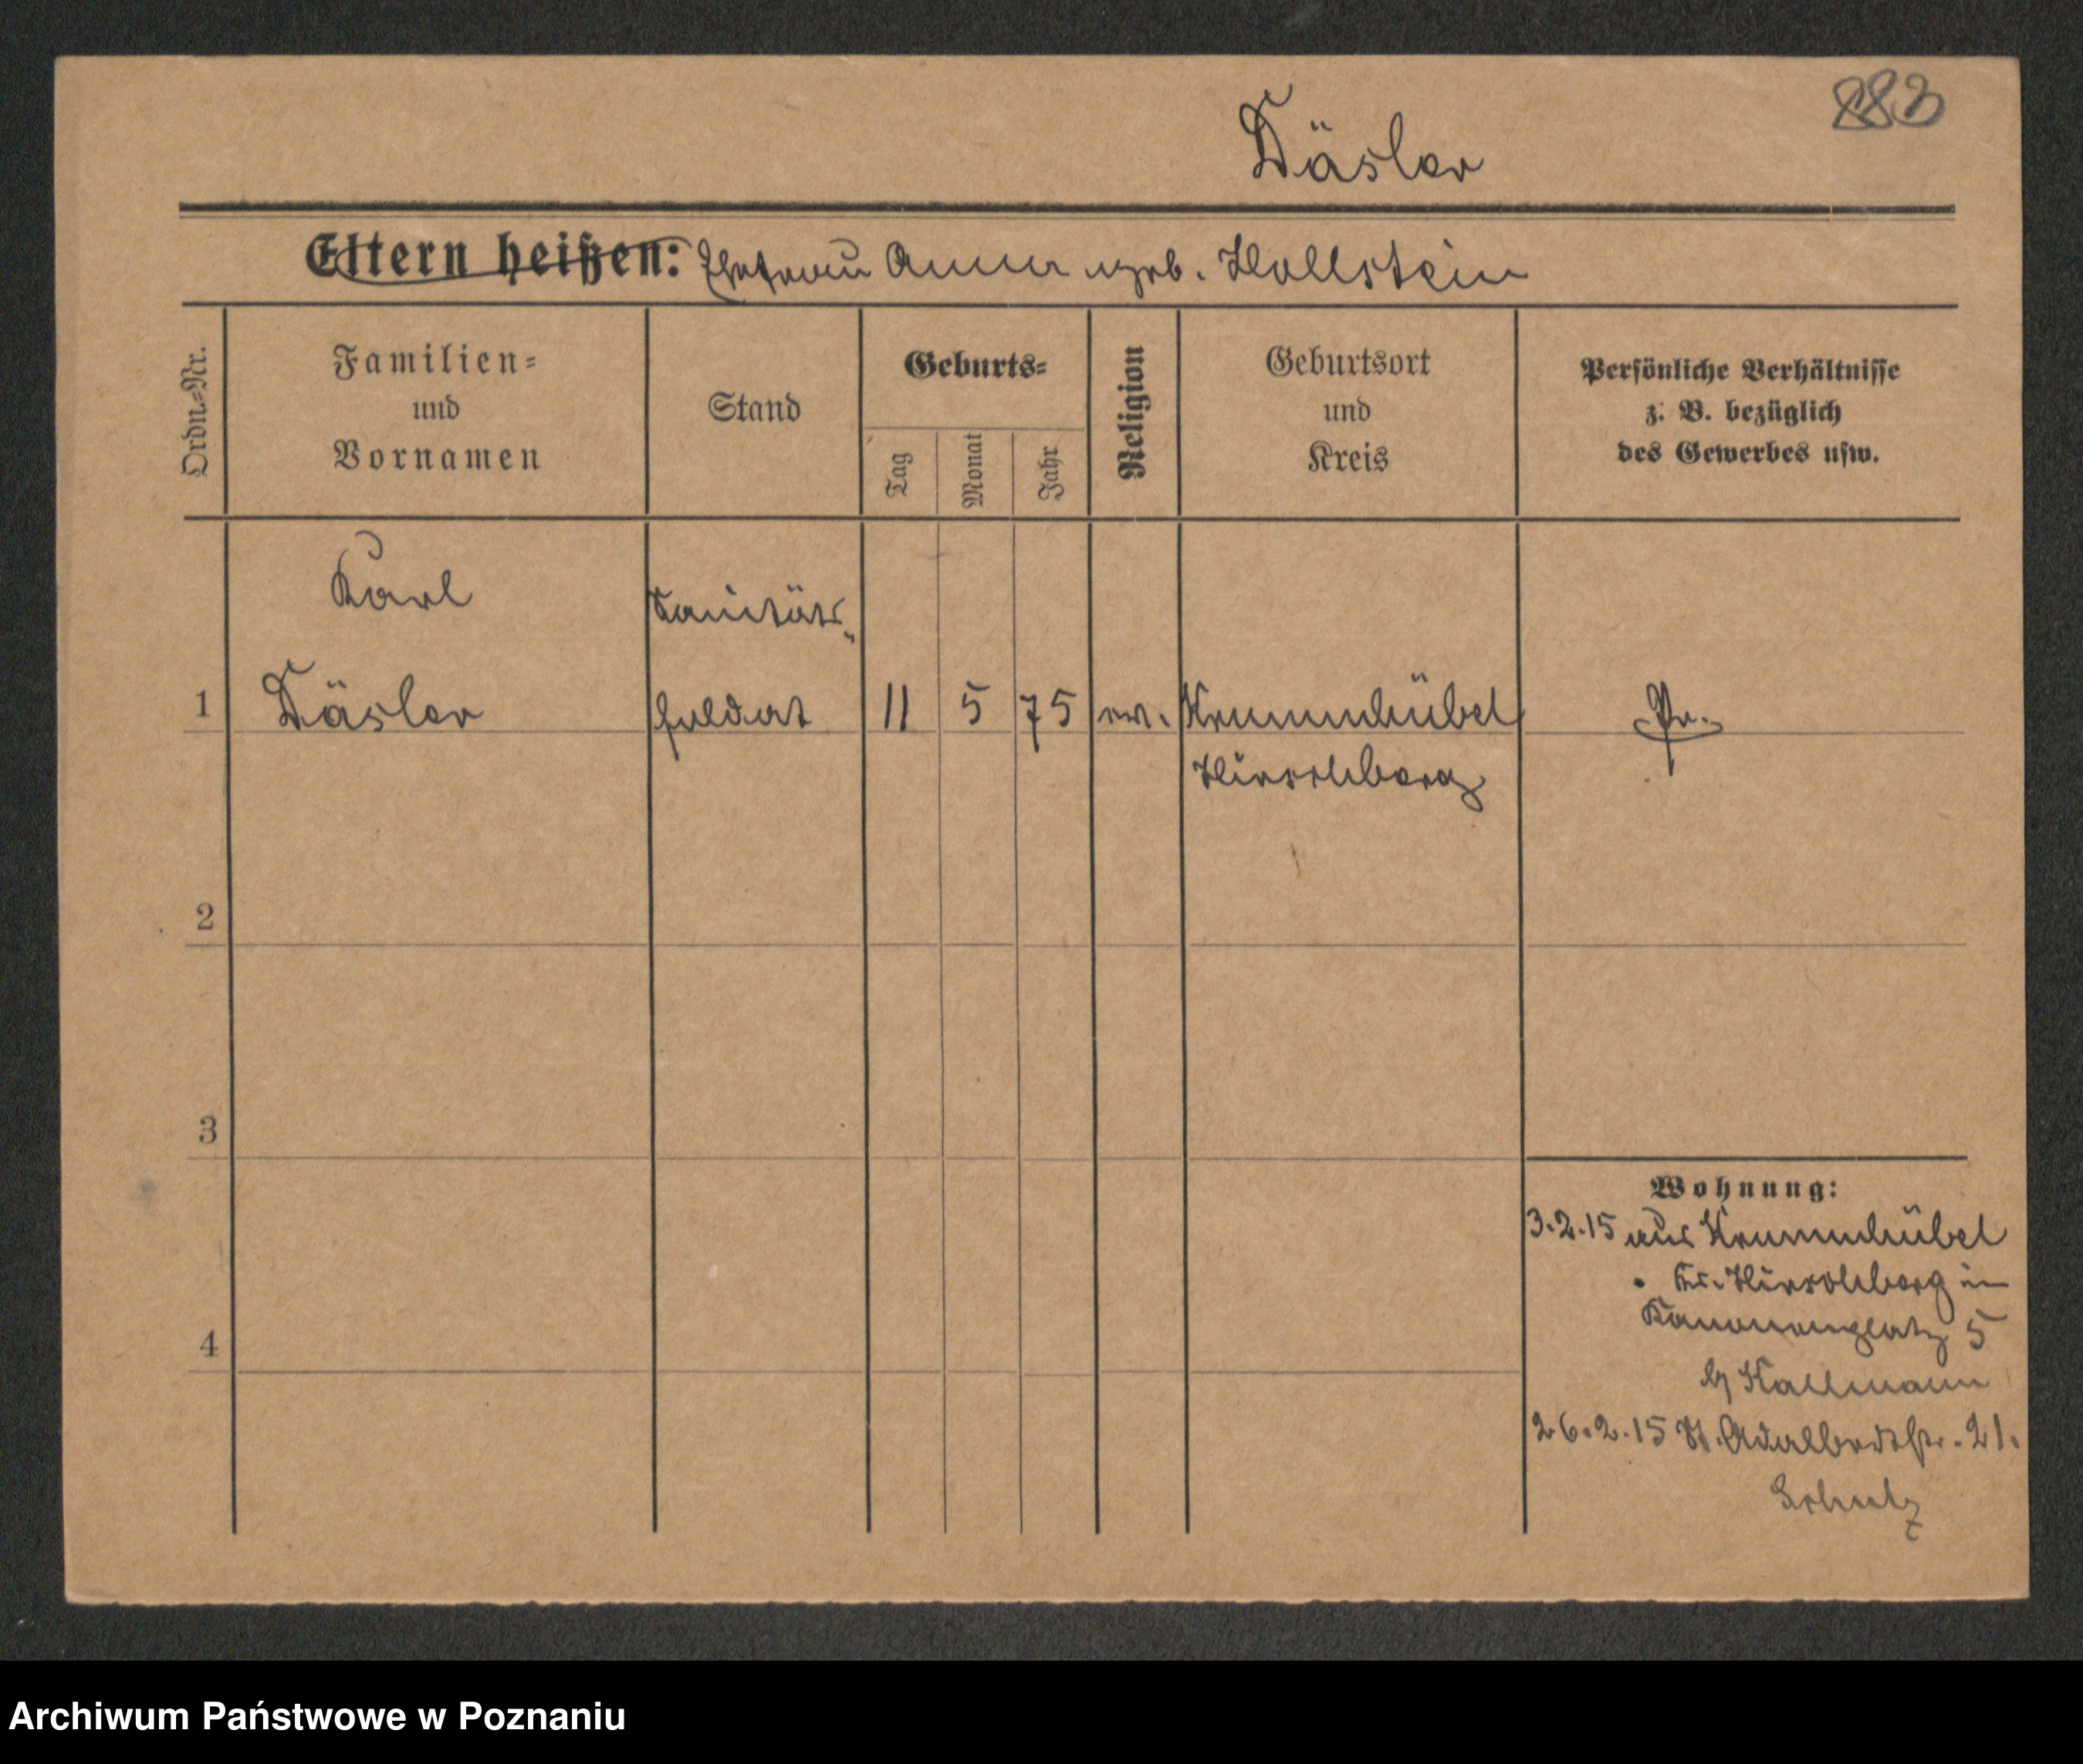 883
Däsler
Eltern heißen: Ehefrau Anna geb. Hollstein
Ordn.=Nr.
Familien=
und
Vornamen
Stand
Geburts=
Tag
Monat
Jahr
Religion
Geburtsort
und
Kreis
Persönliche Verhältnisse
z. B. bezüglich
des Gewerbes usw.
Karl
Sanitäts-
1 Däsler soldat 11 5 75 ev. Krummhübel Pr.
Hirschberg
2
3
Wohnung:
3.2.15 aus Krummhübel
Kr. Hirschberg in
4
Kanonenplatz 5
b/ Kallmann
26.2.15 St. Adalbertstr. 21.
Schulz
Archiwum Państwowe w Poznaniu